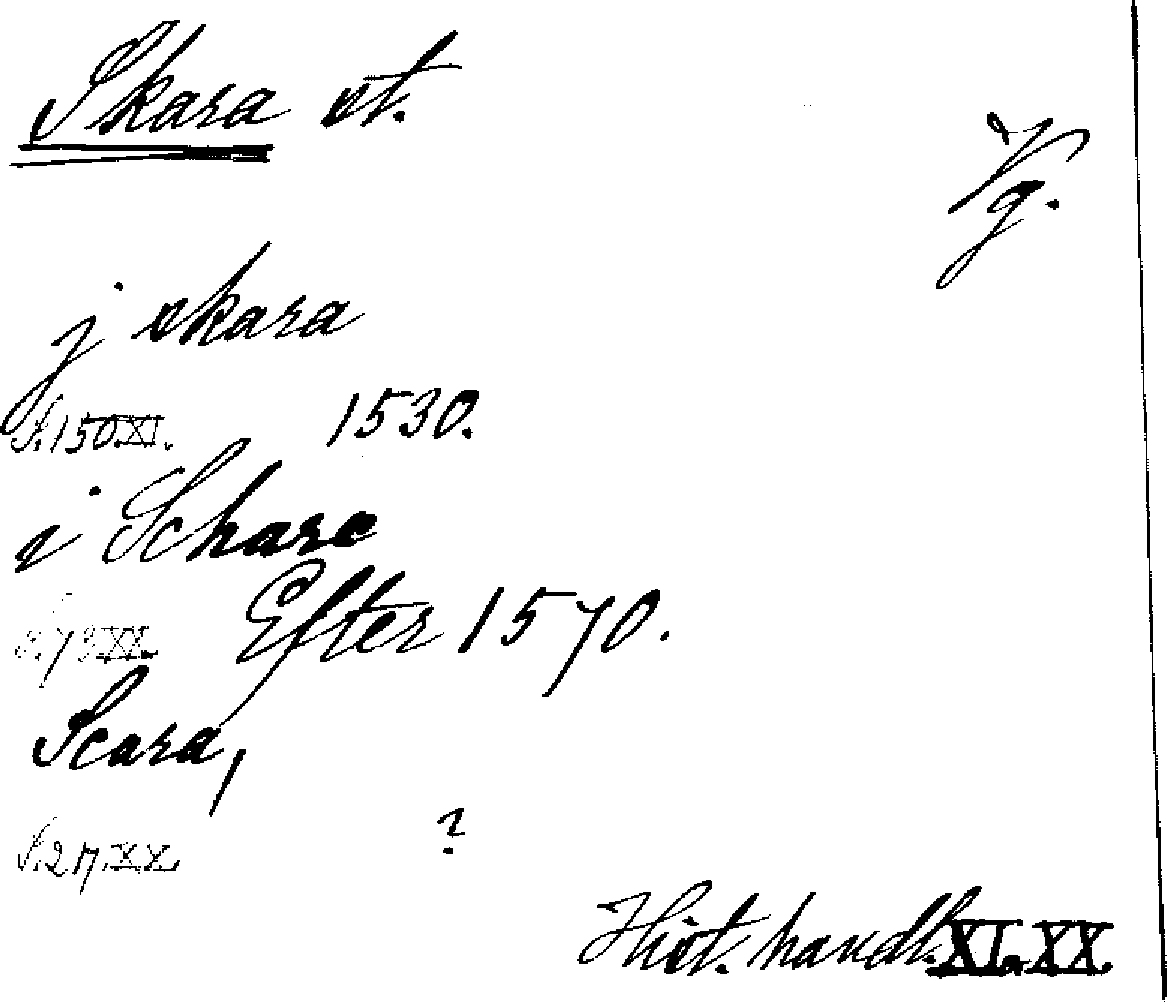 Skara st.
Vg.
j skara
S. 150. XI. 1530.
i Schara
S. 73 XX. Efter 1570.
Scara,
S. 27. XX. ?
Hist. handl. XI. XX.